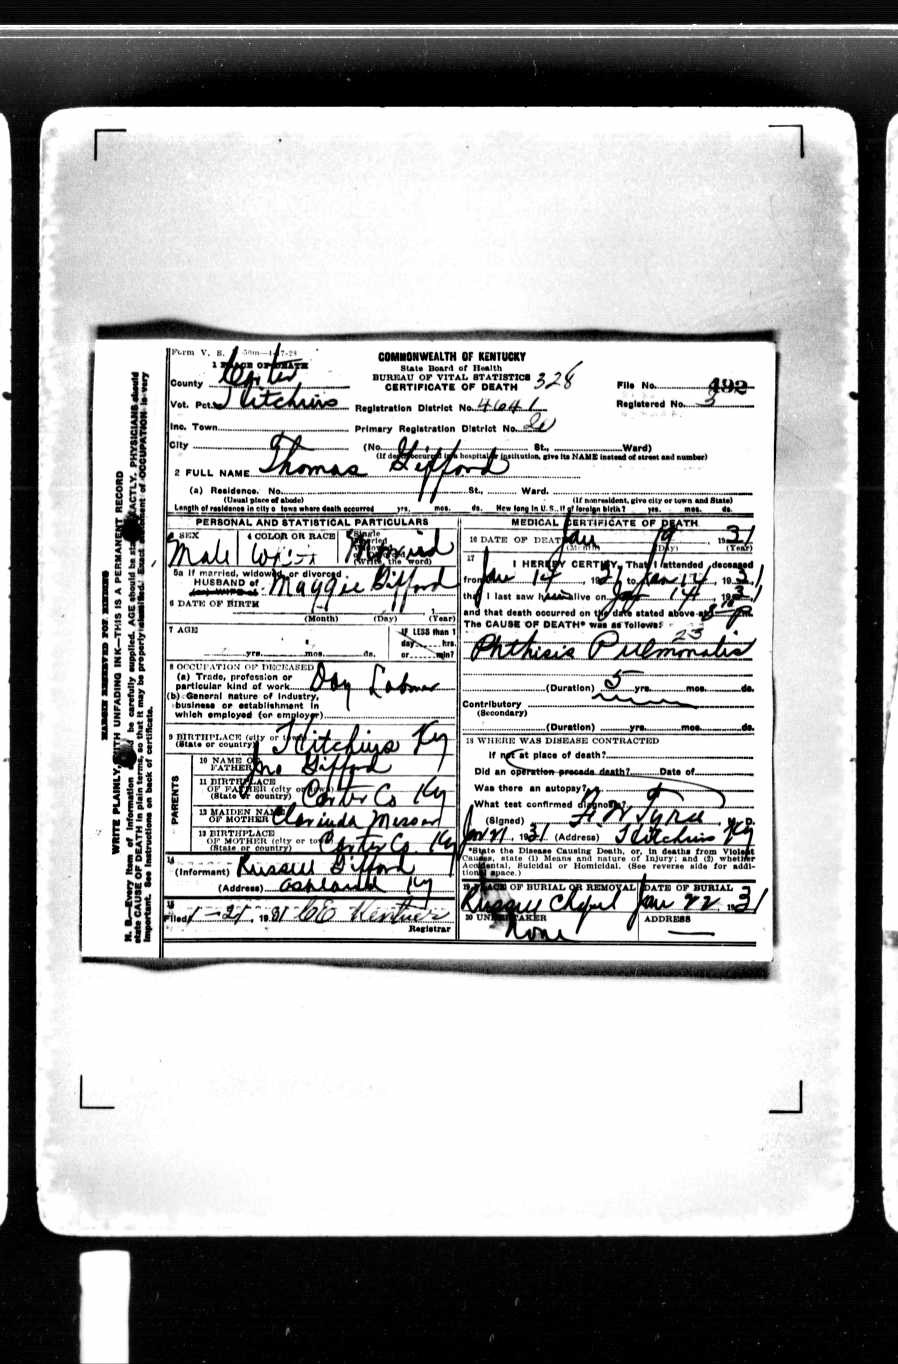 Form V. S.
1 PLACE OF DEATH
County Carter
Vot. Pct. Hitchins
Inc. Town
City
COMMONWEALTH OF KENTUCKY
State Board of Health
BUREAU OF VITAL STATISTICS
CERTIFICATE OF DEATH 328
File No. 492
Registered No. 3
Registration District No. 4641
Primary Registration District No.
(No. St., Ward)
(If death occurred in a hospital or institution, give its NAME instead of street and number)
2 FULL NAME Thomas Gifford
(a) Residence. No. St., Ward.
(Usual place of abode) (If nonresident, give city or town and State)
Length of residence in city o town where death occurred yrs. mos. ds. How long in U. S., if of foreign birth? yrs. mos. ds.
PERSONAL AND STATISTICAL PARTICULARS
3 SEX 4 COLOR OR RACE
Male White Married
(Write the word)
5a If married, widowed, or divorced
HUSBAND of Maggie Gifford
6 DATE OF BIRTH
(Month) (Day) (Year)
7 AGE
yrs. mos. ds.
IF LESS than 1
day hrs.
or min?
8 OCCUPATION OF DECEASED
(a) Trade, profession or
particular kind of work Day Labor
(b) General nature of industry,
business or establishment in
which employed (or employer)
9 BIRTHPLACE (city or town)
(State or country) Hitchins Ky
PARENTS
10 NAME OF
FATHER Jno Gifford
11 BIRTHPLACE
OF FATHER (city or town)
(State or country) Carter Co Ky
12 MAIDEN NAME
OF MOTHER Clarinda Messer
13 BIRTHPLACE
OF MOTHER (city or town)
(State or country) Carter Co. Ky
14
(Informant) Russell Gifford
(Address) Ashland Ky
15
Filed 1-21, 1931 CE Kentner
Registrar
MEDICAL CERTIFICATE OF DEATH
16 DATE OF DEATH Jan 19, 1931
(Month) (Day) (Year)
17
I HEREBY CERTIFY, That I attended deceased
from Jan 14, 1931, to Jan 14, 1931
that I last saw him alive on Jan 14, 1931
and that death occurred on the date stated above at
The CAUSE OF DEATH* was as follows:
23
Phthisis Pulmonalis
(Duration) 5 yrs. mos. ds.
Contributory
(Secondary)
(Duration) yrs. mos. ds.
18 WHERE WAS DISEASE CONTRACTED
If not at place of death?
Did an operation precede death? Date of
Was there an autopsy?
What test confirmed diagnosis?
(Signed) M. D.
Jan 21, 1931 (Address) Hitchins Ky
*State the Disease Causing Death, or, in deaths from Violent
Causes, state (1) Means and nature of Injury; and (2) whether
Accidental, Suicidal or Homicidal. (See reverse side for addi-
tional space.)
19 PLACE OF BURIAL OR REMOVAL DATE OF BURIAL
Russell Chapel Jan 22, 1931
20 UNDERTAKER ADDRESS
None
MARGIN RESERVED FOR BINDING
WRITE PLAINLY, WITH UNFADING INK—THIS IS A PERMANENT RECORD
N. B.—Every item of information should be carefully supplied. AGE should be stated EXACTLY. PHYSICIANS should
state CAUSE OF DEATH in plain terms, so that it may be properly classified. Exact statement of OCCUPATION is very
important. See instructions on back of certificate.